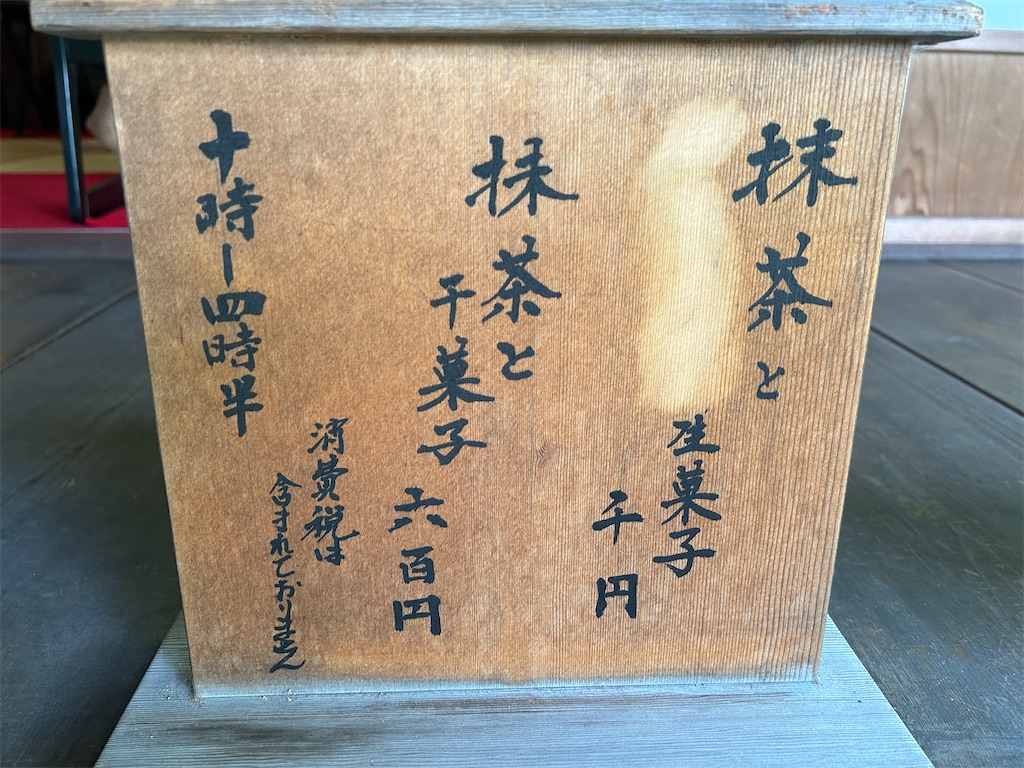 抹茶と
生菓子
千円
抹茶と
干菓子
六百円
消費税は
含まれておりません
十時ー四時半